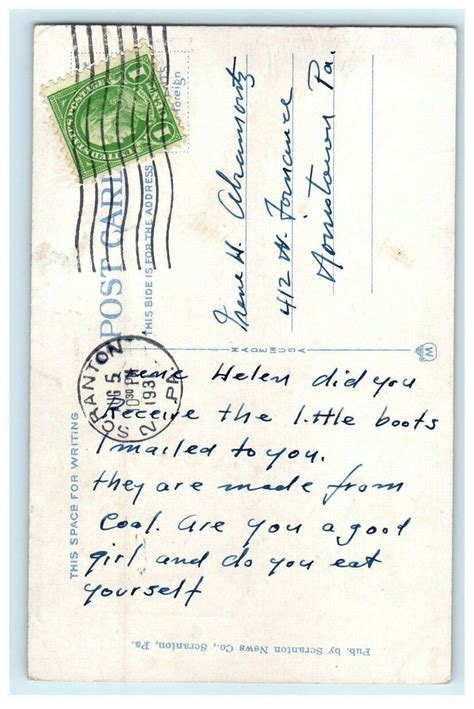 POST CARD
THIS SIDE IS FOR THE ADDRESS
foreign
Irene H. Abramovitz
412 W. Fornance
Norristown Pa.
MADE IN USA
M
SCRANTON
PA
AUG 5
1930 PM
193
2
THIS SPACE FOR WRITING
Irene Helen did you
Receive the little boots
I mailed to you.
they are made from
Coal. are you a good
girl and do you eat
yourself
Pub. by Scranton News Co., Scranton, Pa.